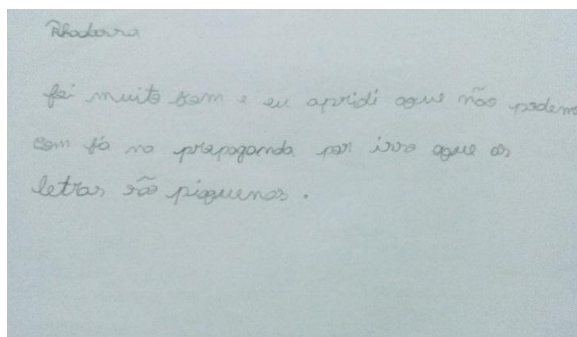 foi muito bom e eu apridi aque não podem
com fá na propaganda por isso aque as
letras são piquenas.